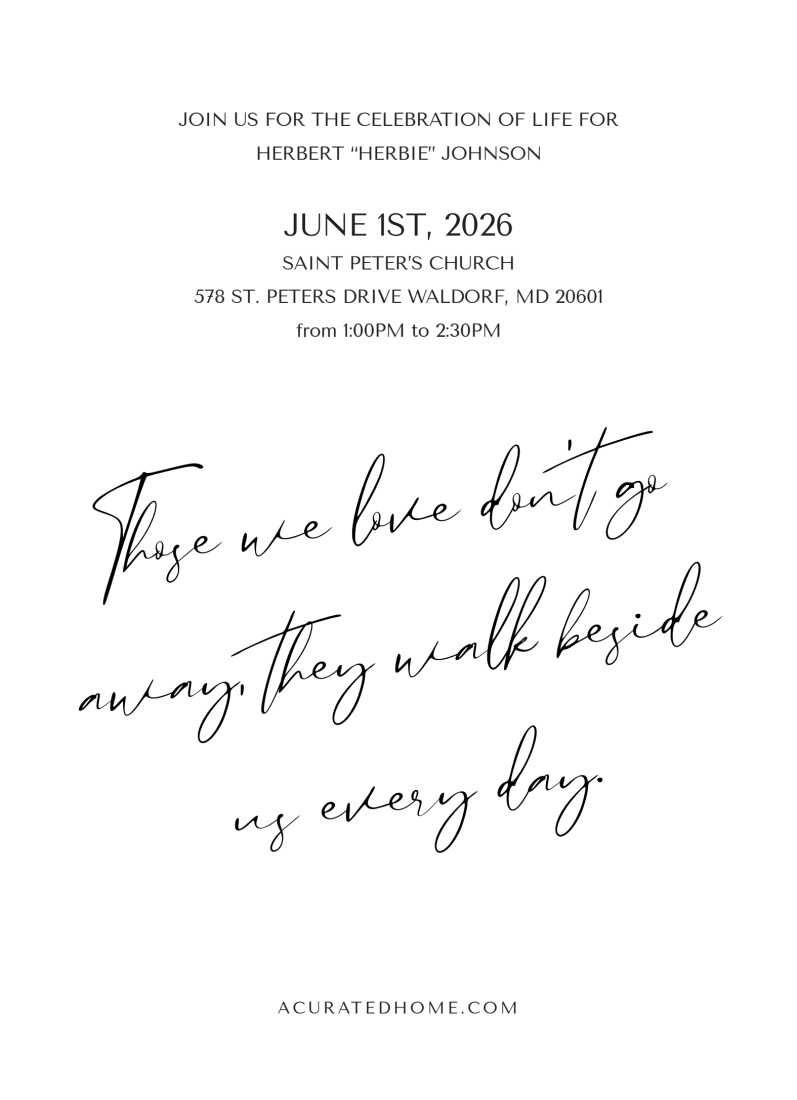 JOIN US FOR THE CELEBRATION OF LIFE FOR
HERBERT “HERBIE” JOHNSON
JUNE 1ST, 2026
SAINT PETER'S CHURCH
578 ST. PETERS DRIVE WALDORF, MD 20601
from 1:00PM to 2:30PM
Those we love don't go
away, they walk beside
us every day.
ACURATEDHOME.COM